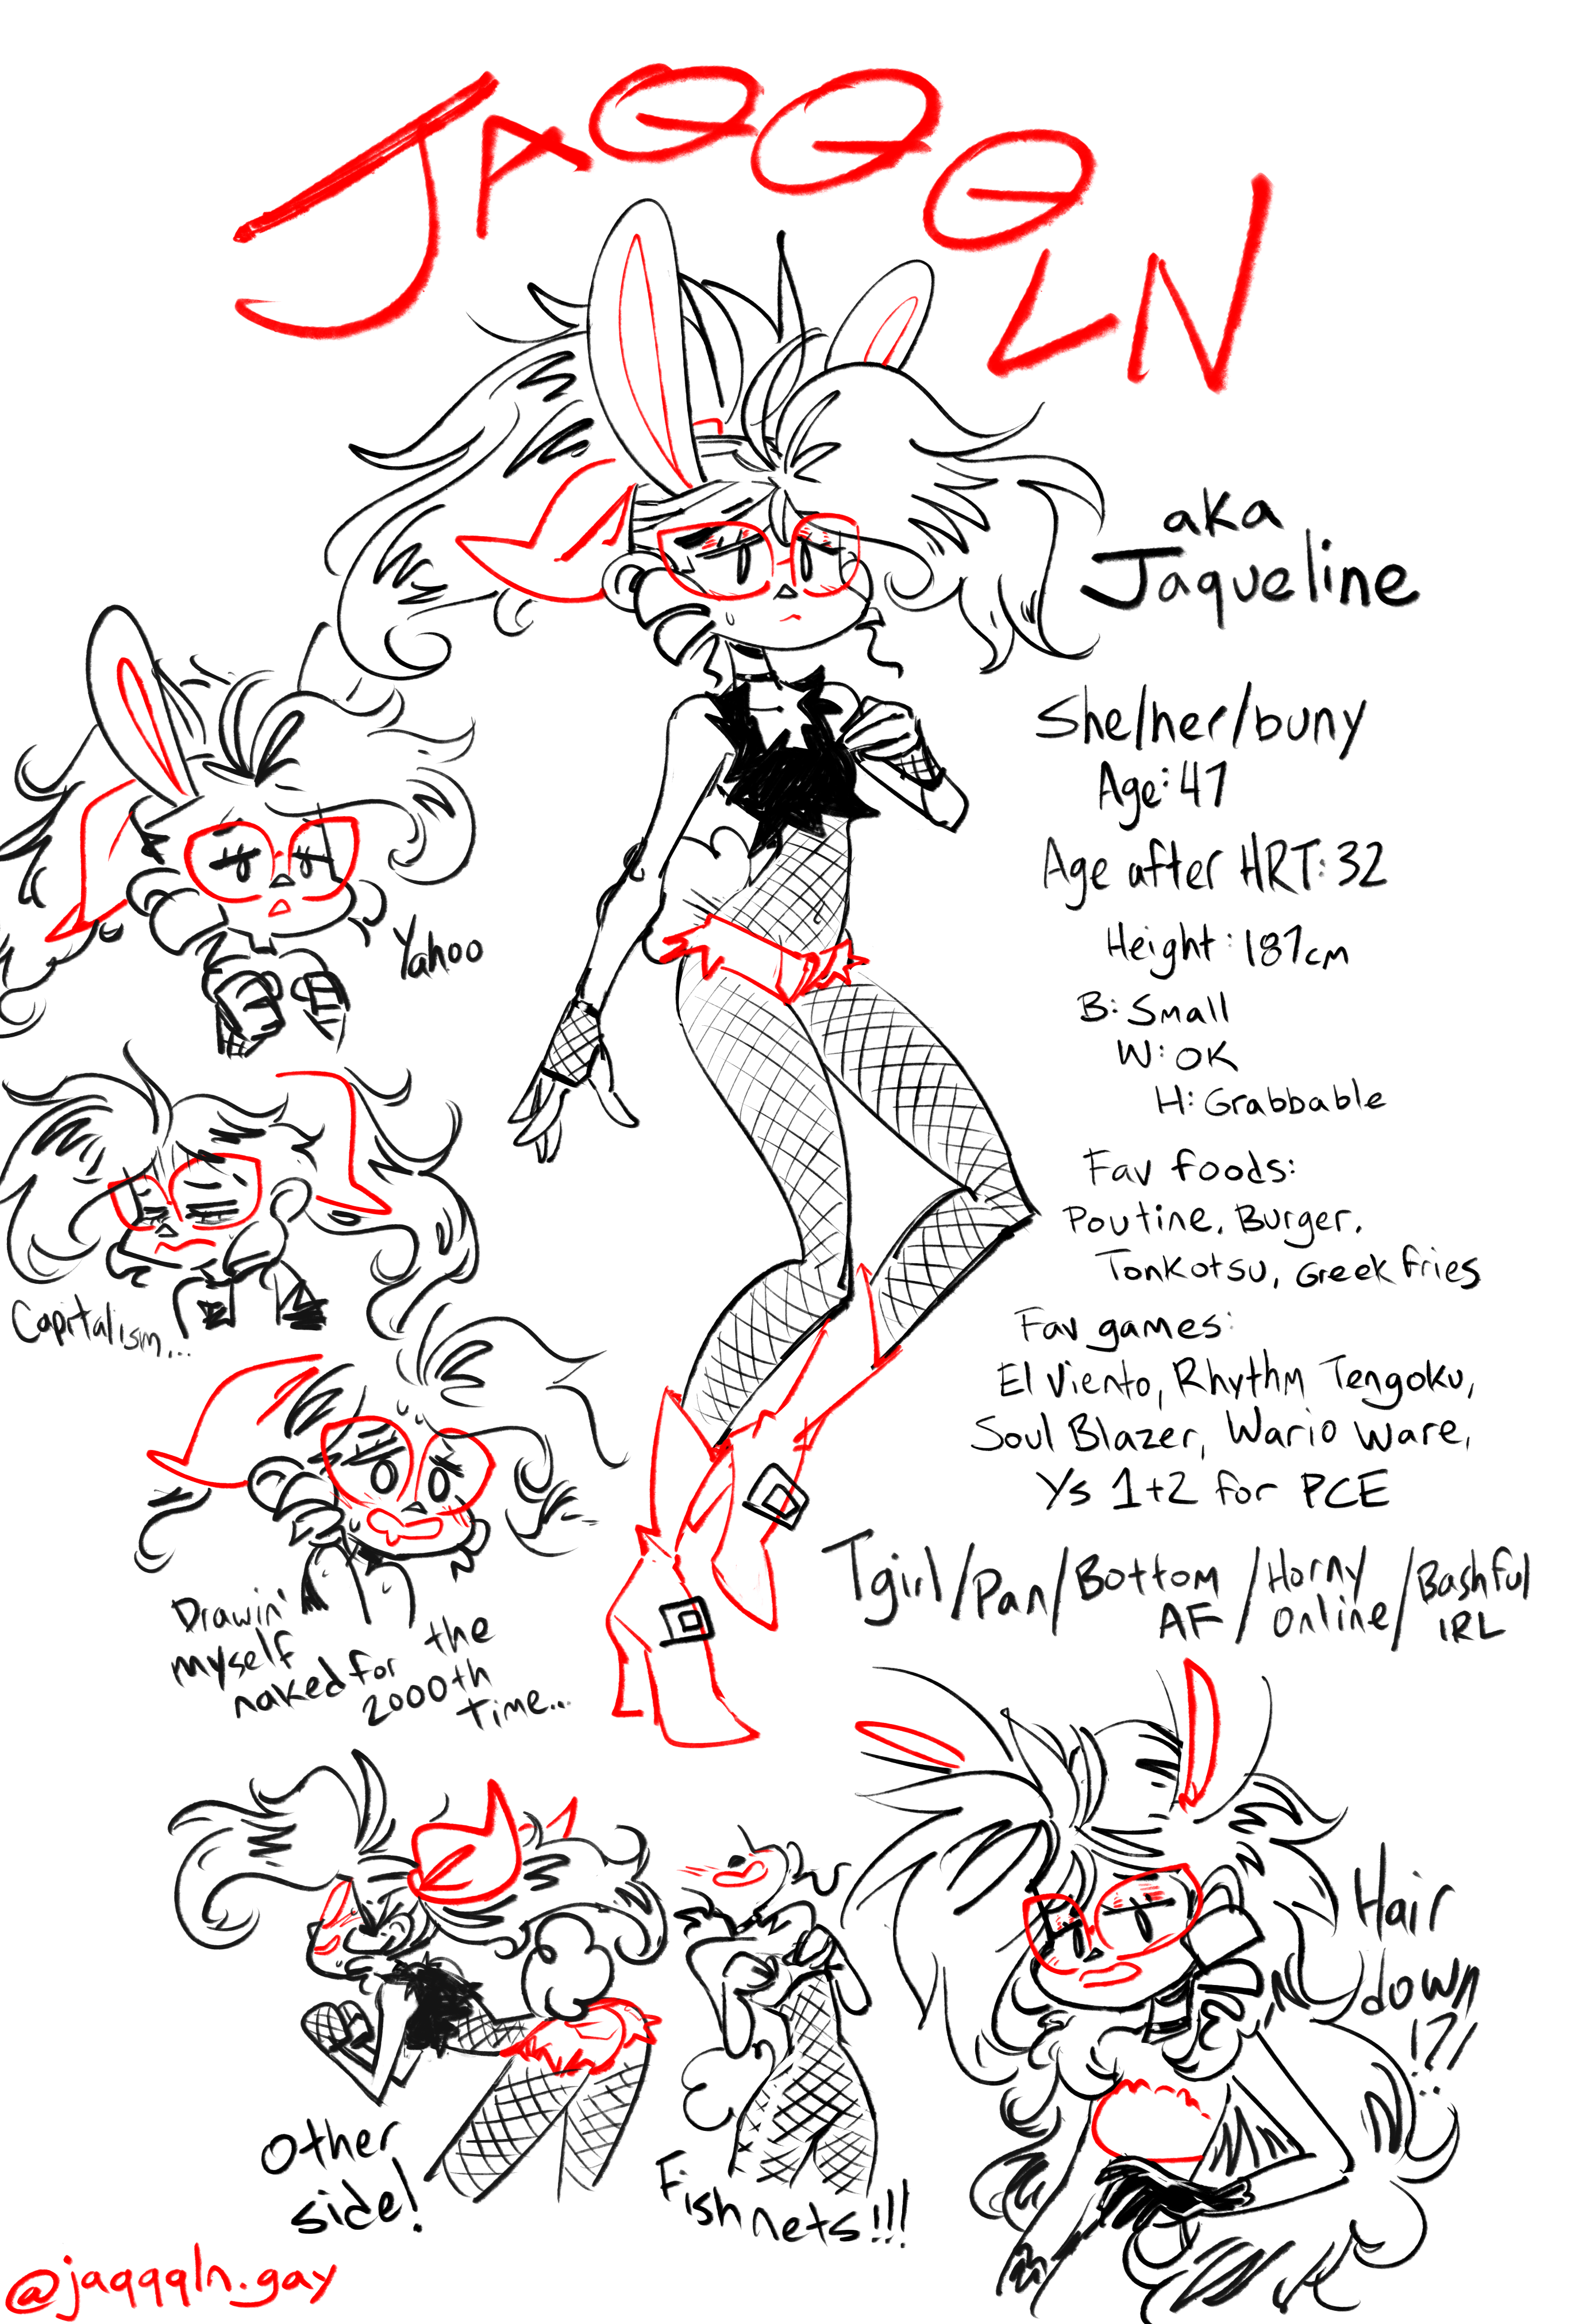 JAQQQLN
aka
Jaqueline
She/her/buny
Age: 47
Age after HRT: 32
Height: 187cm
B: Small
W: OK
H: Grabbable
Fav foods:
Poutine, Burger,
Tonkotsu, Greek fries
Fav games:
El Viento, Rhythm Tengoku,
Soul Blazer, Wario Ware,
Ys 1+2 for PCE
Tgirl/Pan/Bottom AF/Horny Online/Bashful IRL
Yahoo
Capitalism...
Drawin'
myself
naked for the
2000th
time...
Other
side!
Fishnets!!!
Hair
down
!?!
@jaqqqln.gay